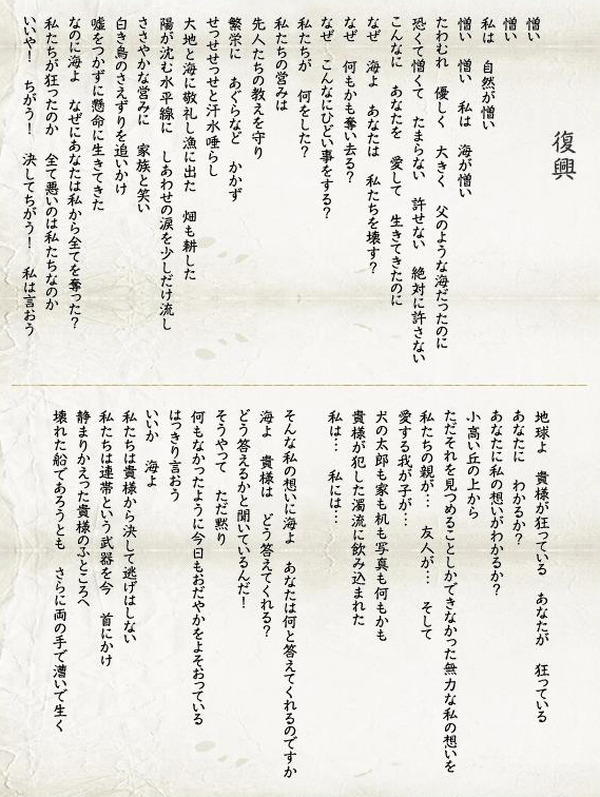 復興
憎い
憎い
私は　自然が憎い
憎い　憎い　私は　海が憎い
たわむれ　優しく　大きく　父のような海だったのに
恐くて憎くて　たまらない　許せない　絶対に許さない
こんなに　あなたを　愛して　生きてきたのに
なぜ　海よ　あなたは　私たちを壊す？
なぜ　何もかも奪い去る？
なぜ　こんなにひどい事をする？
私たちが　何をした？
私たちの営みは
先人たちの教えを守り
繁栄に　あぐらなど　かかず
せっせっせと汗水垂らし
大地と海に敬礼し漁に出た　畑も耕した
陽が沈む水平線に　しあわせの涙を少しだけ流し
ささやかな営みに　家族と笑い
白き鳥のさえずりを追いかけ
嘘をつかずに懸命に生きてきた
なのに海よ　なぜにあなたは私から全てを奪った？
私たちが狂ったのか　全て悪いのは私たちなのか
いいや！　ちがう！　決してちがう！　私は言おう
地球よ　貴様が狂っている　あなたが　狂っている
あなたに　わかるか？
あなたに私の想いがわかるか？
小高い丘の上から
ただそれを見つめることしかできなかった無力な私の想いを
私たちの親が…　友人が…　そして
愛する我が子が…
犬の太郎も家も机も写真も何もかも
貴様が犯した濁流に飲み込まれた
私は…　私には…
そんな私の想いに海よ　あなたは何と答えてくれるのですか
海よ　貴様は　どう答えてくれる？
どう答えるかと聞いているんだ！
そうやって　ただ黙り
何もなかったように今日もおだやかをよそおっている
はっきり言おう
いいか　海よ
私たちは貴様から決して逃げはしない
私たちは連帯という武器を今　首にかけ
静まりかえった貴様のふところへ
壊れた船であろうとも　さらに両の手で漕いで生く